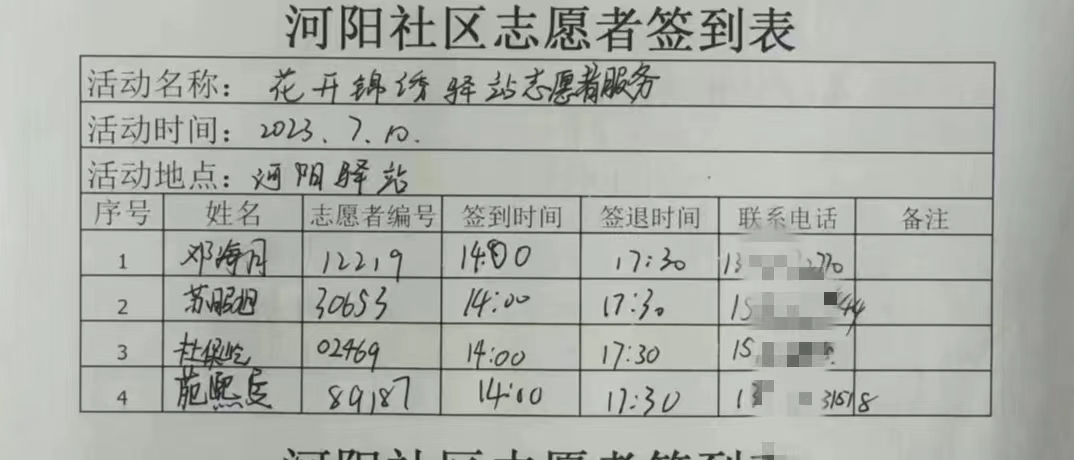 河阳社区志愿者签到表
活动名称：花开锦绣驿站志愿者服务
活动时间：2023.7.10.
活动地点：河阳驿站
序号 姓名 志愿者编号 签到时间 签退时间 联系电话 备注
1 邓海月 12219 14:00 17:30 13 2770
2 苏 30653 14:00 17:30 15 44
3 杜 02469 14:00 17:30 15
4 范熙 89187 14:00 17:30 13 31518
河阳社区志愿者签到表